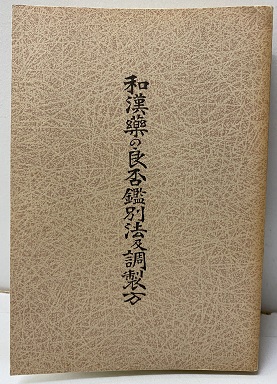 和漢藥の良否鑑別法及調製方